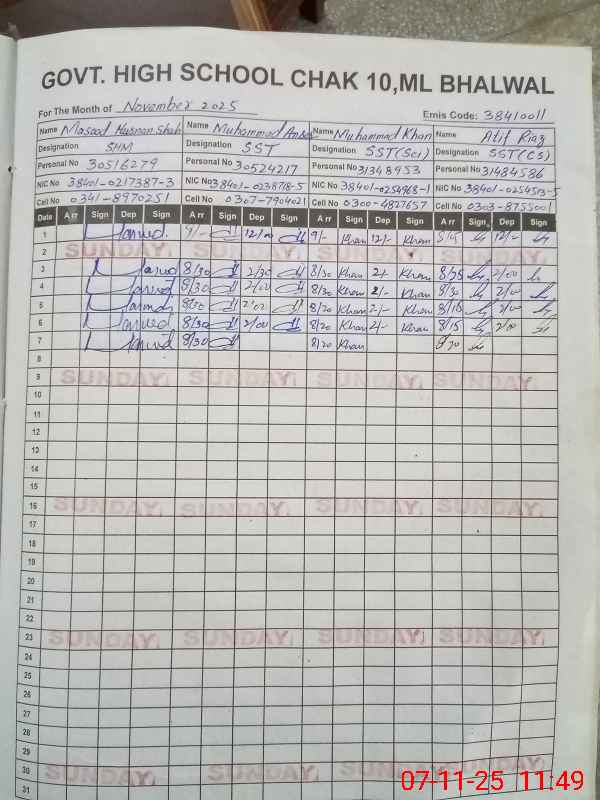 GOVT. HIGH SCHOOL CHAK 10,ML BHALWAL
For The Month of November 2025 Emis Code: 38410011
Name Masood Hasnan Shah Name Muhammad Name Muhammad Khan Name Atif Riaz
Designation SHM Designation SST Designation SST(Sci) Designation SST(CS)
Personal No 30516279 Personal No 30524217 Personal No 31348953 Personal No 31484586
NIC No 38401-0217387-3 NIC No 38401-0238718-5 NIC No 38401-0254968-1 NIC No 38401-0254513-5
Cell No 0341-8970251 Cell No 0307-7904021 Cell No 0300-4827657 Cell No 0303-8755001
Date A rr Sign Dep Sign A rr Sign Dep Sign A rr Sign Dep Sign A rr Sign Dep Sign
1 9/- 12/00 9/- Khan 12/- Khan
2 SUNDAY SUNDAY SUNDAY SUNDAY
3 8/30 2/30 8/30 Khan 2/- Khan 2/00
4 8/30 2/00 8/30 Khan 2/- Khan 8/30 2/00
5 8/30 2/00 8/20 Khan 2/- Khan 8/15 2/00
6 8/30 2/00 8/20 Khan 2/- Khan 8/15 2/00
7 8/30 8/20 Khan 8/20
8
9 SUNDAY SUNDAY SUNDAY SUNDAY
10
11
12
13
14
15
16 SUNDAY SUNDAY SUNDAY SUNDAY
17
18
19
20
21
22
23 SUNDAY SUNDAY SUNDAY SUNDAY
24
25
26
27
28
29
30 SUNDAY SUNDAY SUNDAY SUNDAY
31
07-11-25 11:49